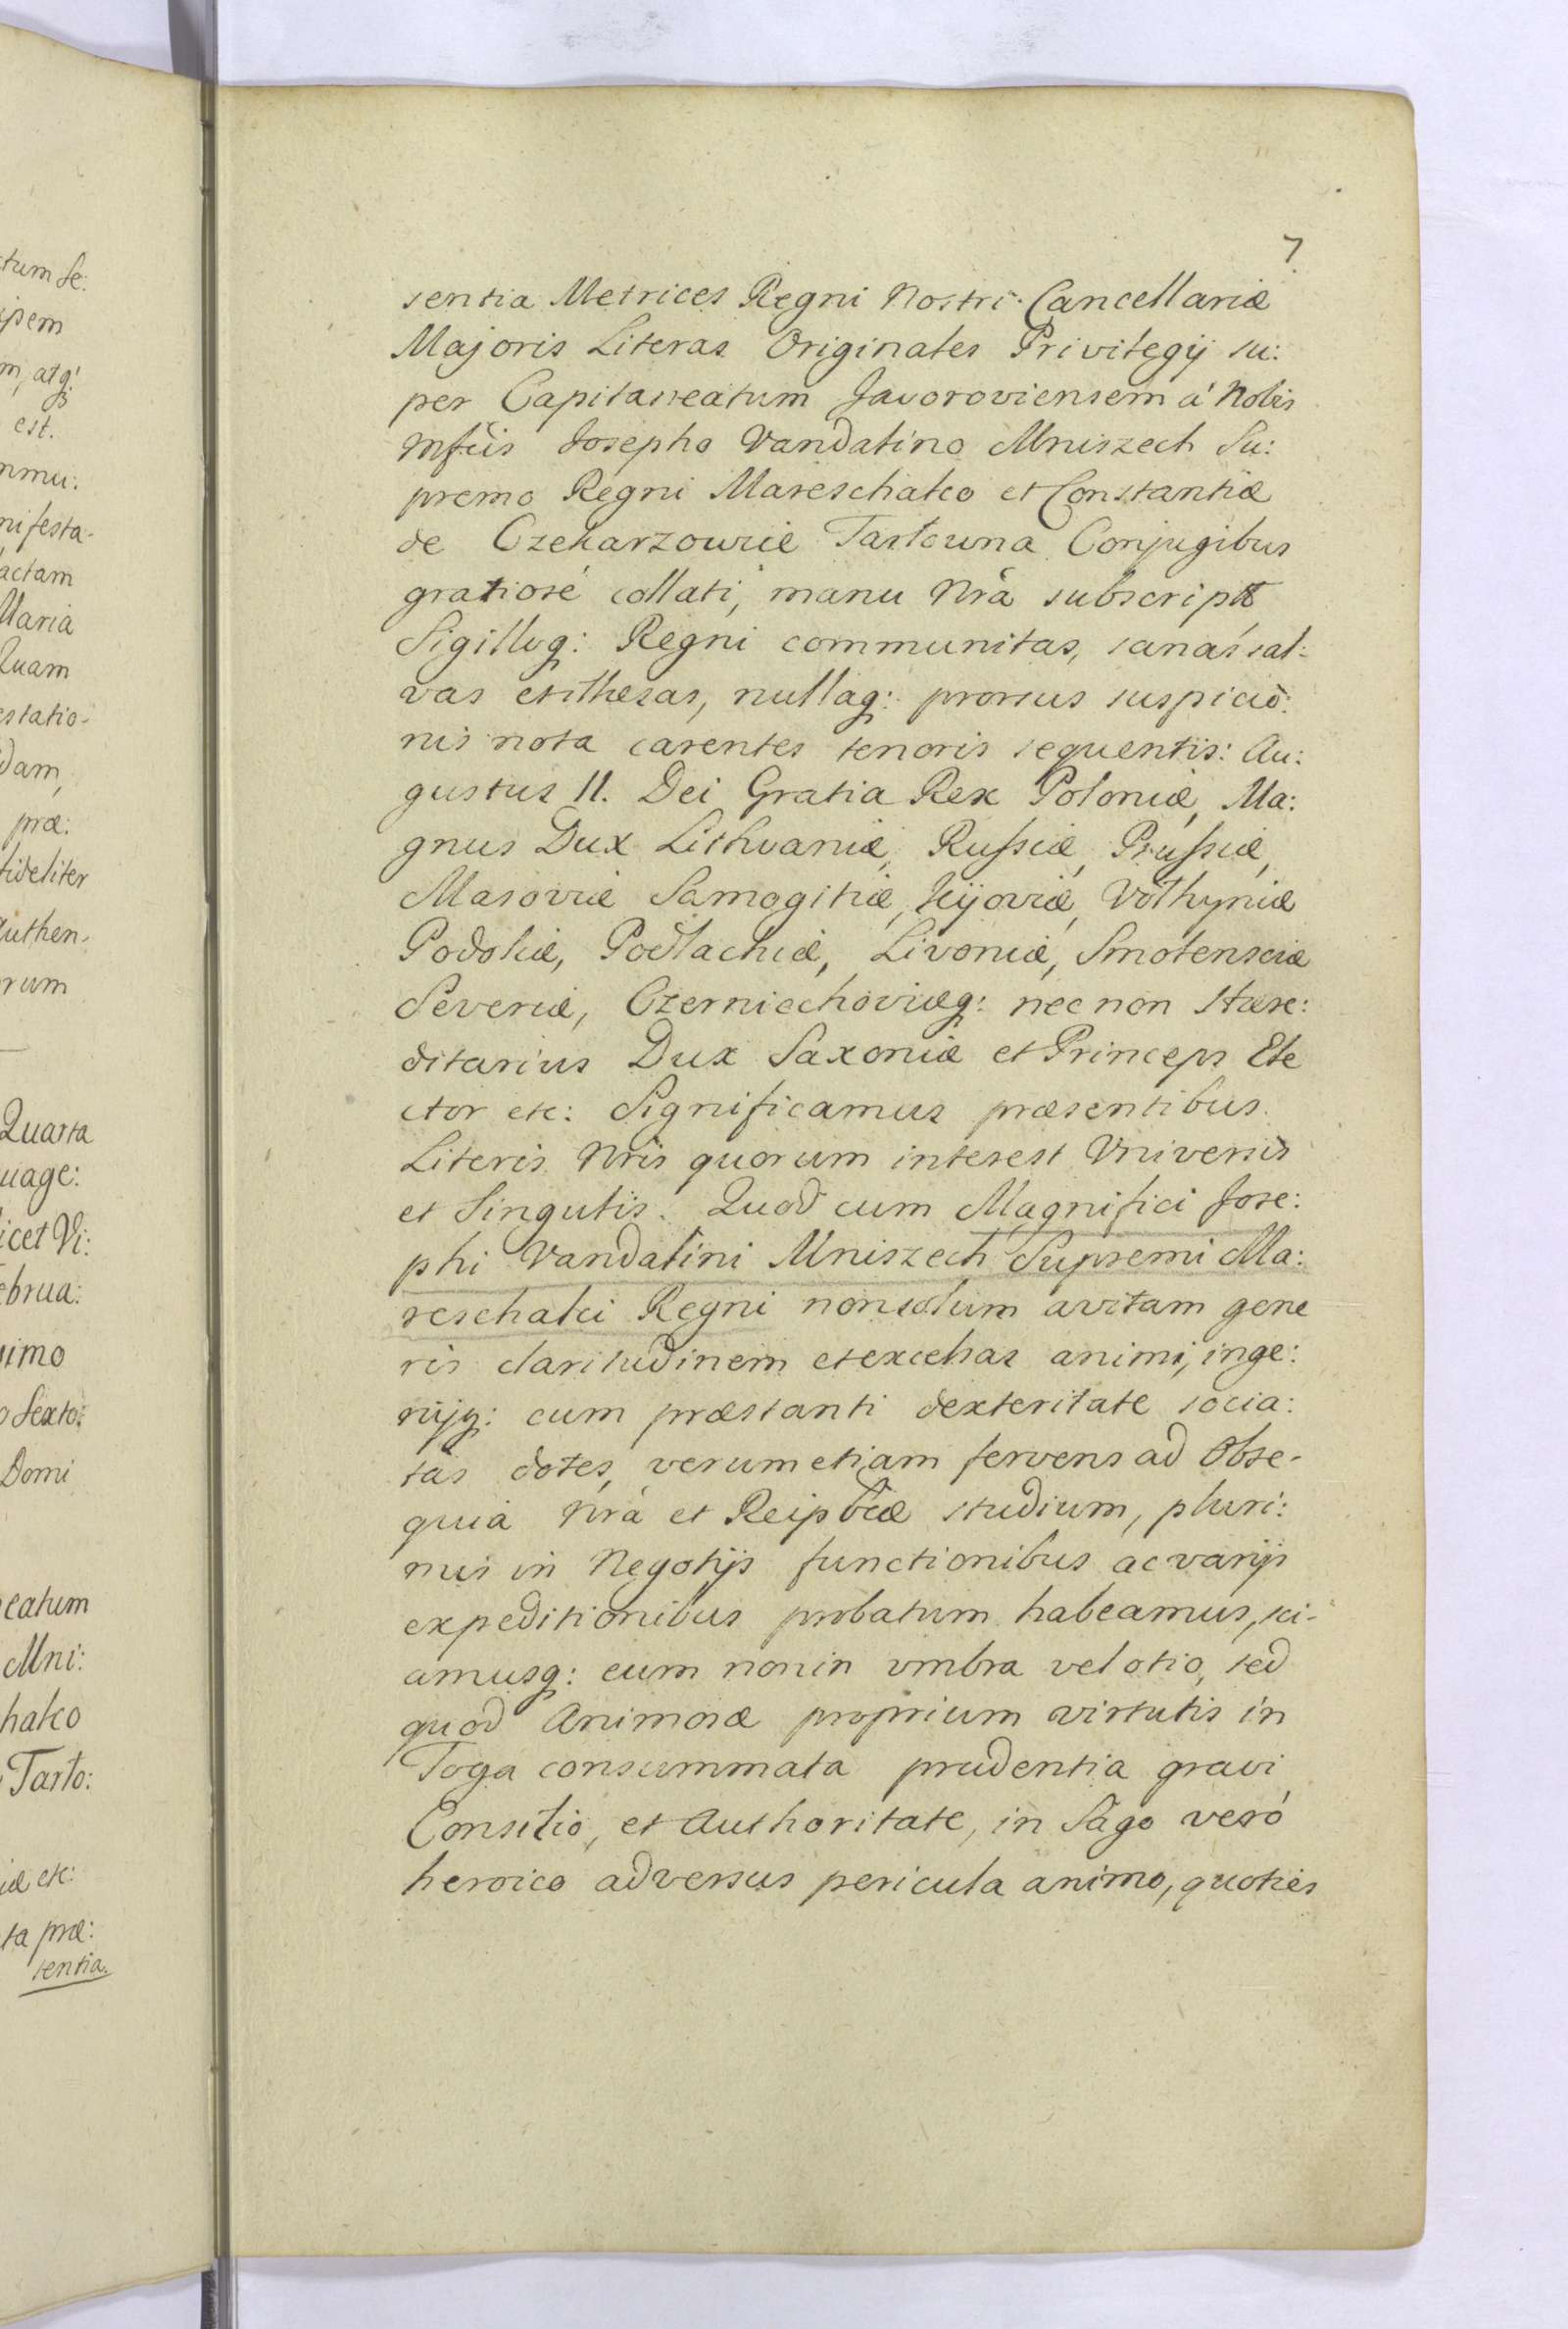 tum Se:
ipem
m, atq:
est.
mmu:
nifesta-
actam
Maria
Quam
estatio-
dam,
præ:
fideliter
Authen-
rum
Quarta
uage:
licet Vi:
ebrua:
simo
o Sexto:
Domi
eatum
Mni:
halco
Tarło:
iæ etc:
ta præ:
sentia.
7
sentia Metrices Regni Nostri Cancellariæ
Majoris Literas Originales Privilegij su:
per Capitaneatum Javoroviensem á Nobis
Mfcis Josepho Vandalino Mniszech Su:
premo Regni Mareschalco et Constantiæ
de Czekarzowicæ Tarłowna Conjugibus
gratiosé collati, manu Nrâ subscript
Sigilloq: Regni communitas, sanas sal:
vas et illæsas, nullaq: prorsus suspicio:
nis nota carentes tenoris sequentis: Au:
gustus II. Dei Gratia Rex Poloniæ, Ma:
gnus Dux Lithvaniæ, Russiæ, Prussiæ,
Masoviæ Samogitiæ, Kijoviæ, Volhyniæ
Podoliæ, Podlachiæ, Livoniæ, Smolensciæ
Severiæ, Czerniechoviæq: nec non Hære:
ditarius Dux Saxoniæ et Princeps Ele
ctor etc: Significamus præsentibus
Literis Nris quorum interest Vniversis
et Singulis. Quod cum Magnifici Jose:
phi Vandalini Mniszech Supremi Ma:
reschalci Regni non solum avitam gene
ris claritudinem et excelsas animi, inge:
nijq: cum præstanti dexteritate socia:
tas dotes, verum etiam fervens ad Obse-
quia Nrâ et Reipbcæ studium, pluri:
mis in Negotijs functionibus ac varijs
expeditionibus probatum habeamus, sci-
amusq: eum non in vmbra vel otio, sed
quod Animosæ proprium virtutis in
Toga consummata prudentia gravi
Consilio, et Authoritate, in Sago veró
heroico adversus pericula animo, quoties